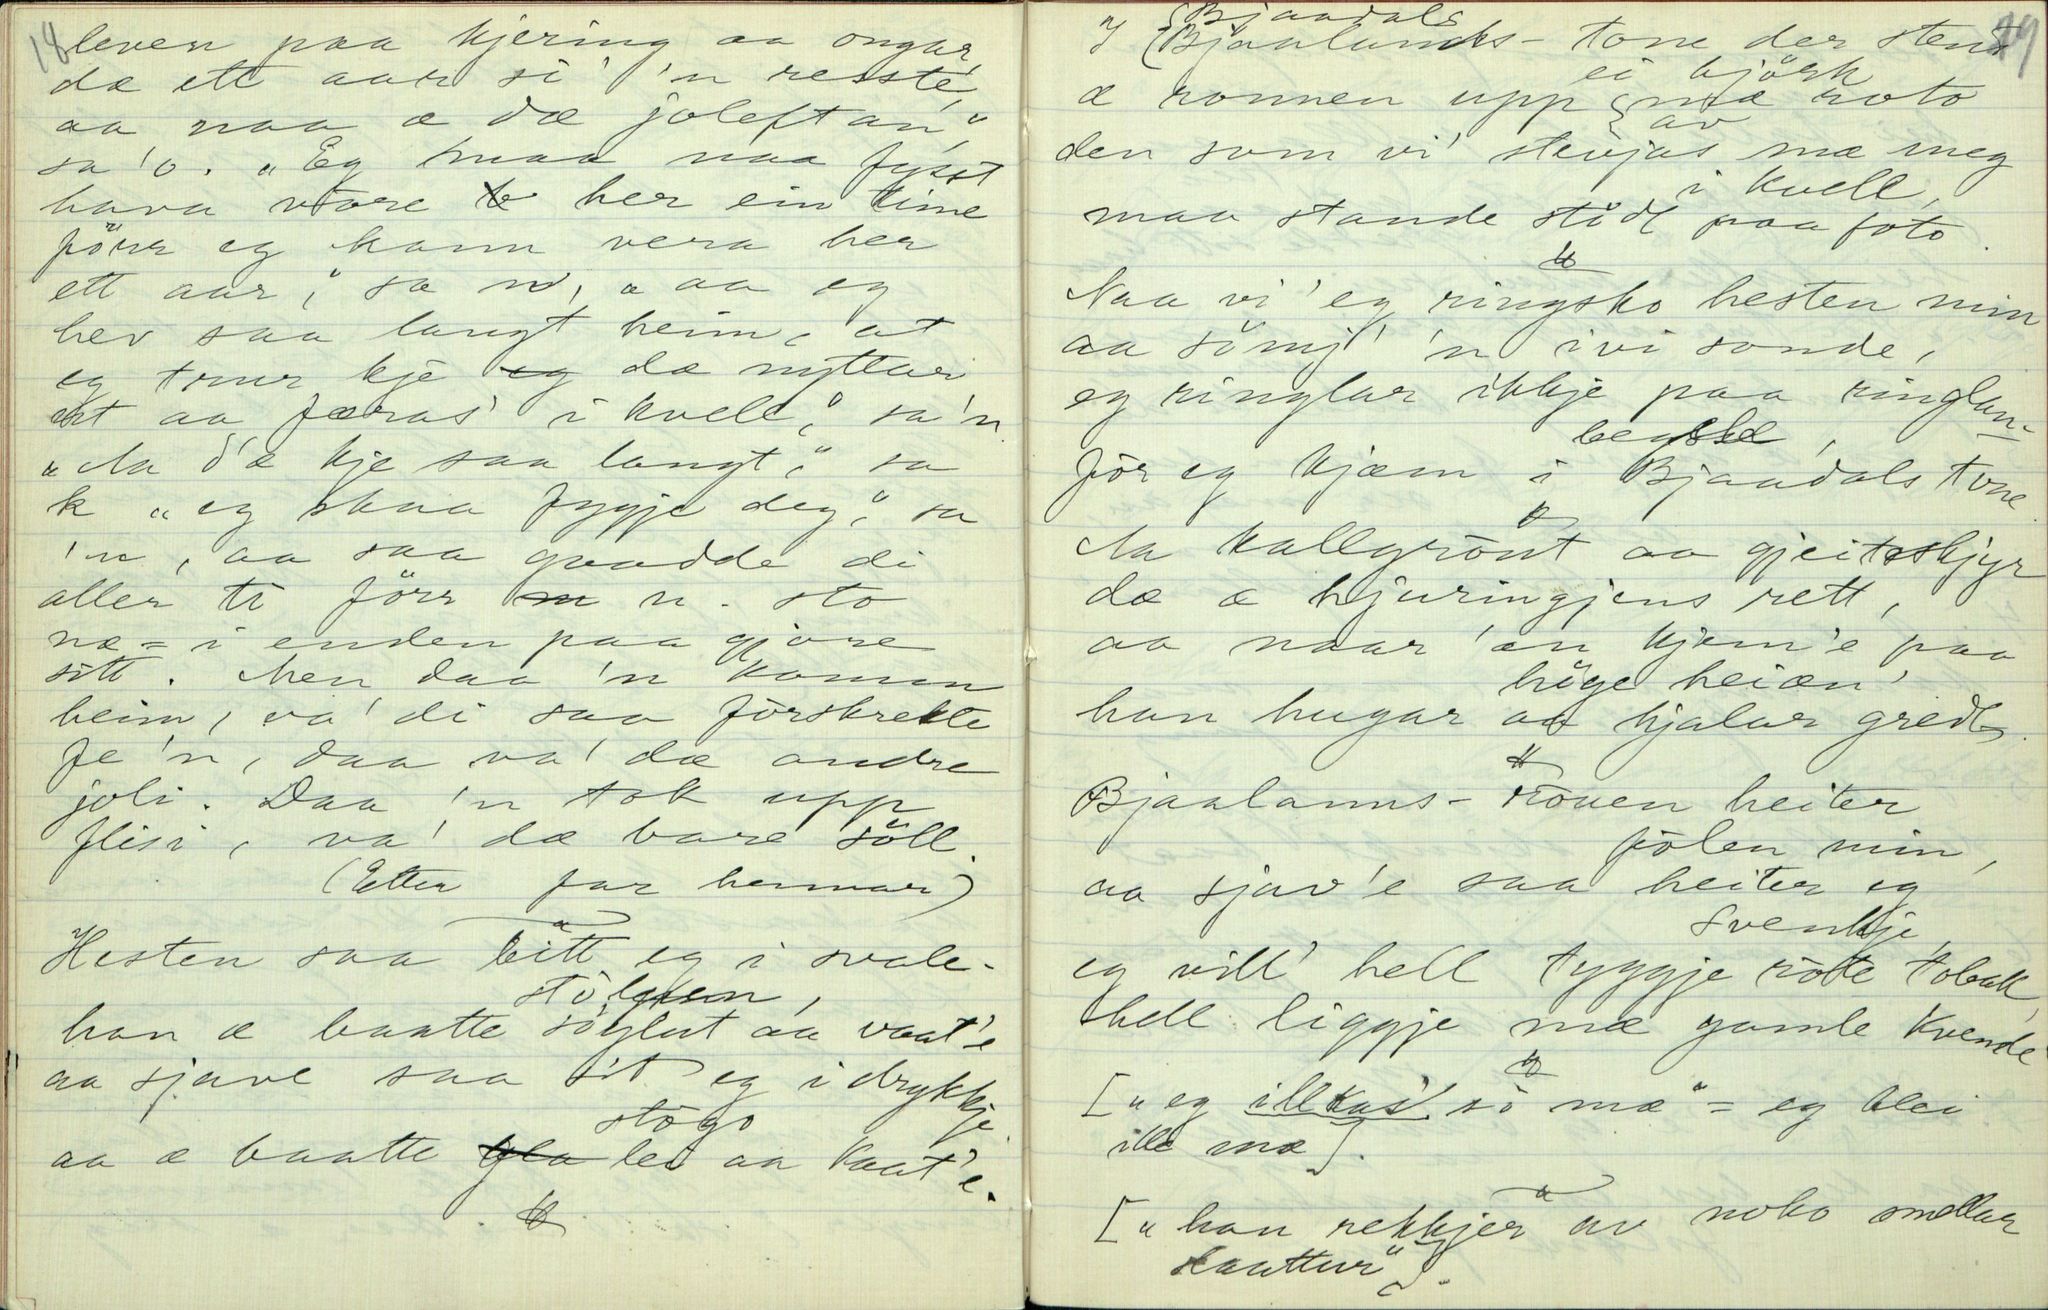 18
leven paa kjering aa ongar,
dæ ett aar si' 'n resste,
aa naa æ dæ joleftan,"
sa 'o. „Eg maa naa fysst
hava vore her ein time
förr eg kann vera her
ett aar," sa 'n, „aa eg
hev saa langt heim, at
eg trur kje dæ nyttar
nt aa færas' i kvell," sa 'n.
„Aa d'æ kje saa langt," sa
k „eg skaa fyggje deg," sa
'n, aa saa gvadde di
aller ti förr n. sto
næ = i enden paa gjore
sitt. Men daa 'n komm
heim, va' di saa förskrekte
fe 'n, daa va' dæ andre
joli. Daa 'n tok upp
flisi, va' dæ bare söll.
(Etter far hennar)
Hesten saa bitt eg i svale-
stölpen,
han æ baatte söglut aa vaat'e
aa sjave saa sit eg i drykkje
stogo
aa æ baatte lei aa kaat'e.
19
Bjaadals
I Bjaalands-tone der stend
ei björk
æ ronnen upp mæ roto
av
den som vi' stevjas mæ meg
i kvell,
maa stande stödt paa foto.
Naa vi' eg ringsko hesten min
aa sömj' 'n ivi sonde,
eg ringlar ikkje paa ringlan-
begsle,
för eg kjæm i Bjaadals tone.
Aa kallgrönt aa gjeiteskjyr
dæ æ hjuringjens rett,
aa naar 'an kjem'e paa
höge heiæn',
han hugar aa hjalar gredt.
Bjaalanns-rouen heiter
fölen min,
aa sjav'e saa heiter eg
Svenkje,
eg vill' hell tyggje röte tobakk,
hell liggje mæ gamle kvende
[„eg illkas' so mæ" = eg blei
ille mæ].
[„han rekkjer av noko smellar
slaattur"].